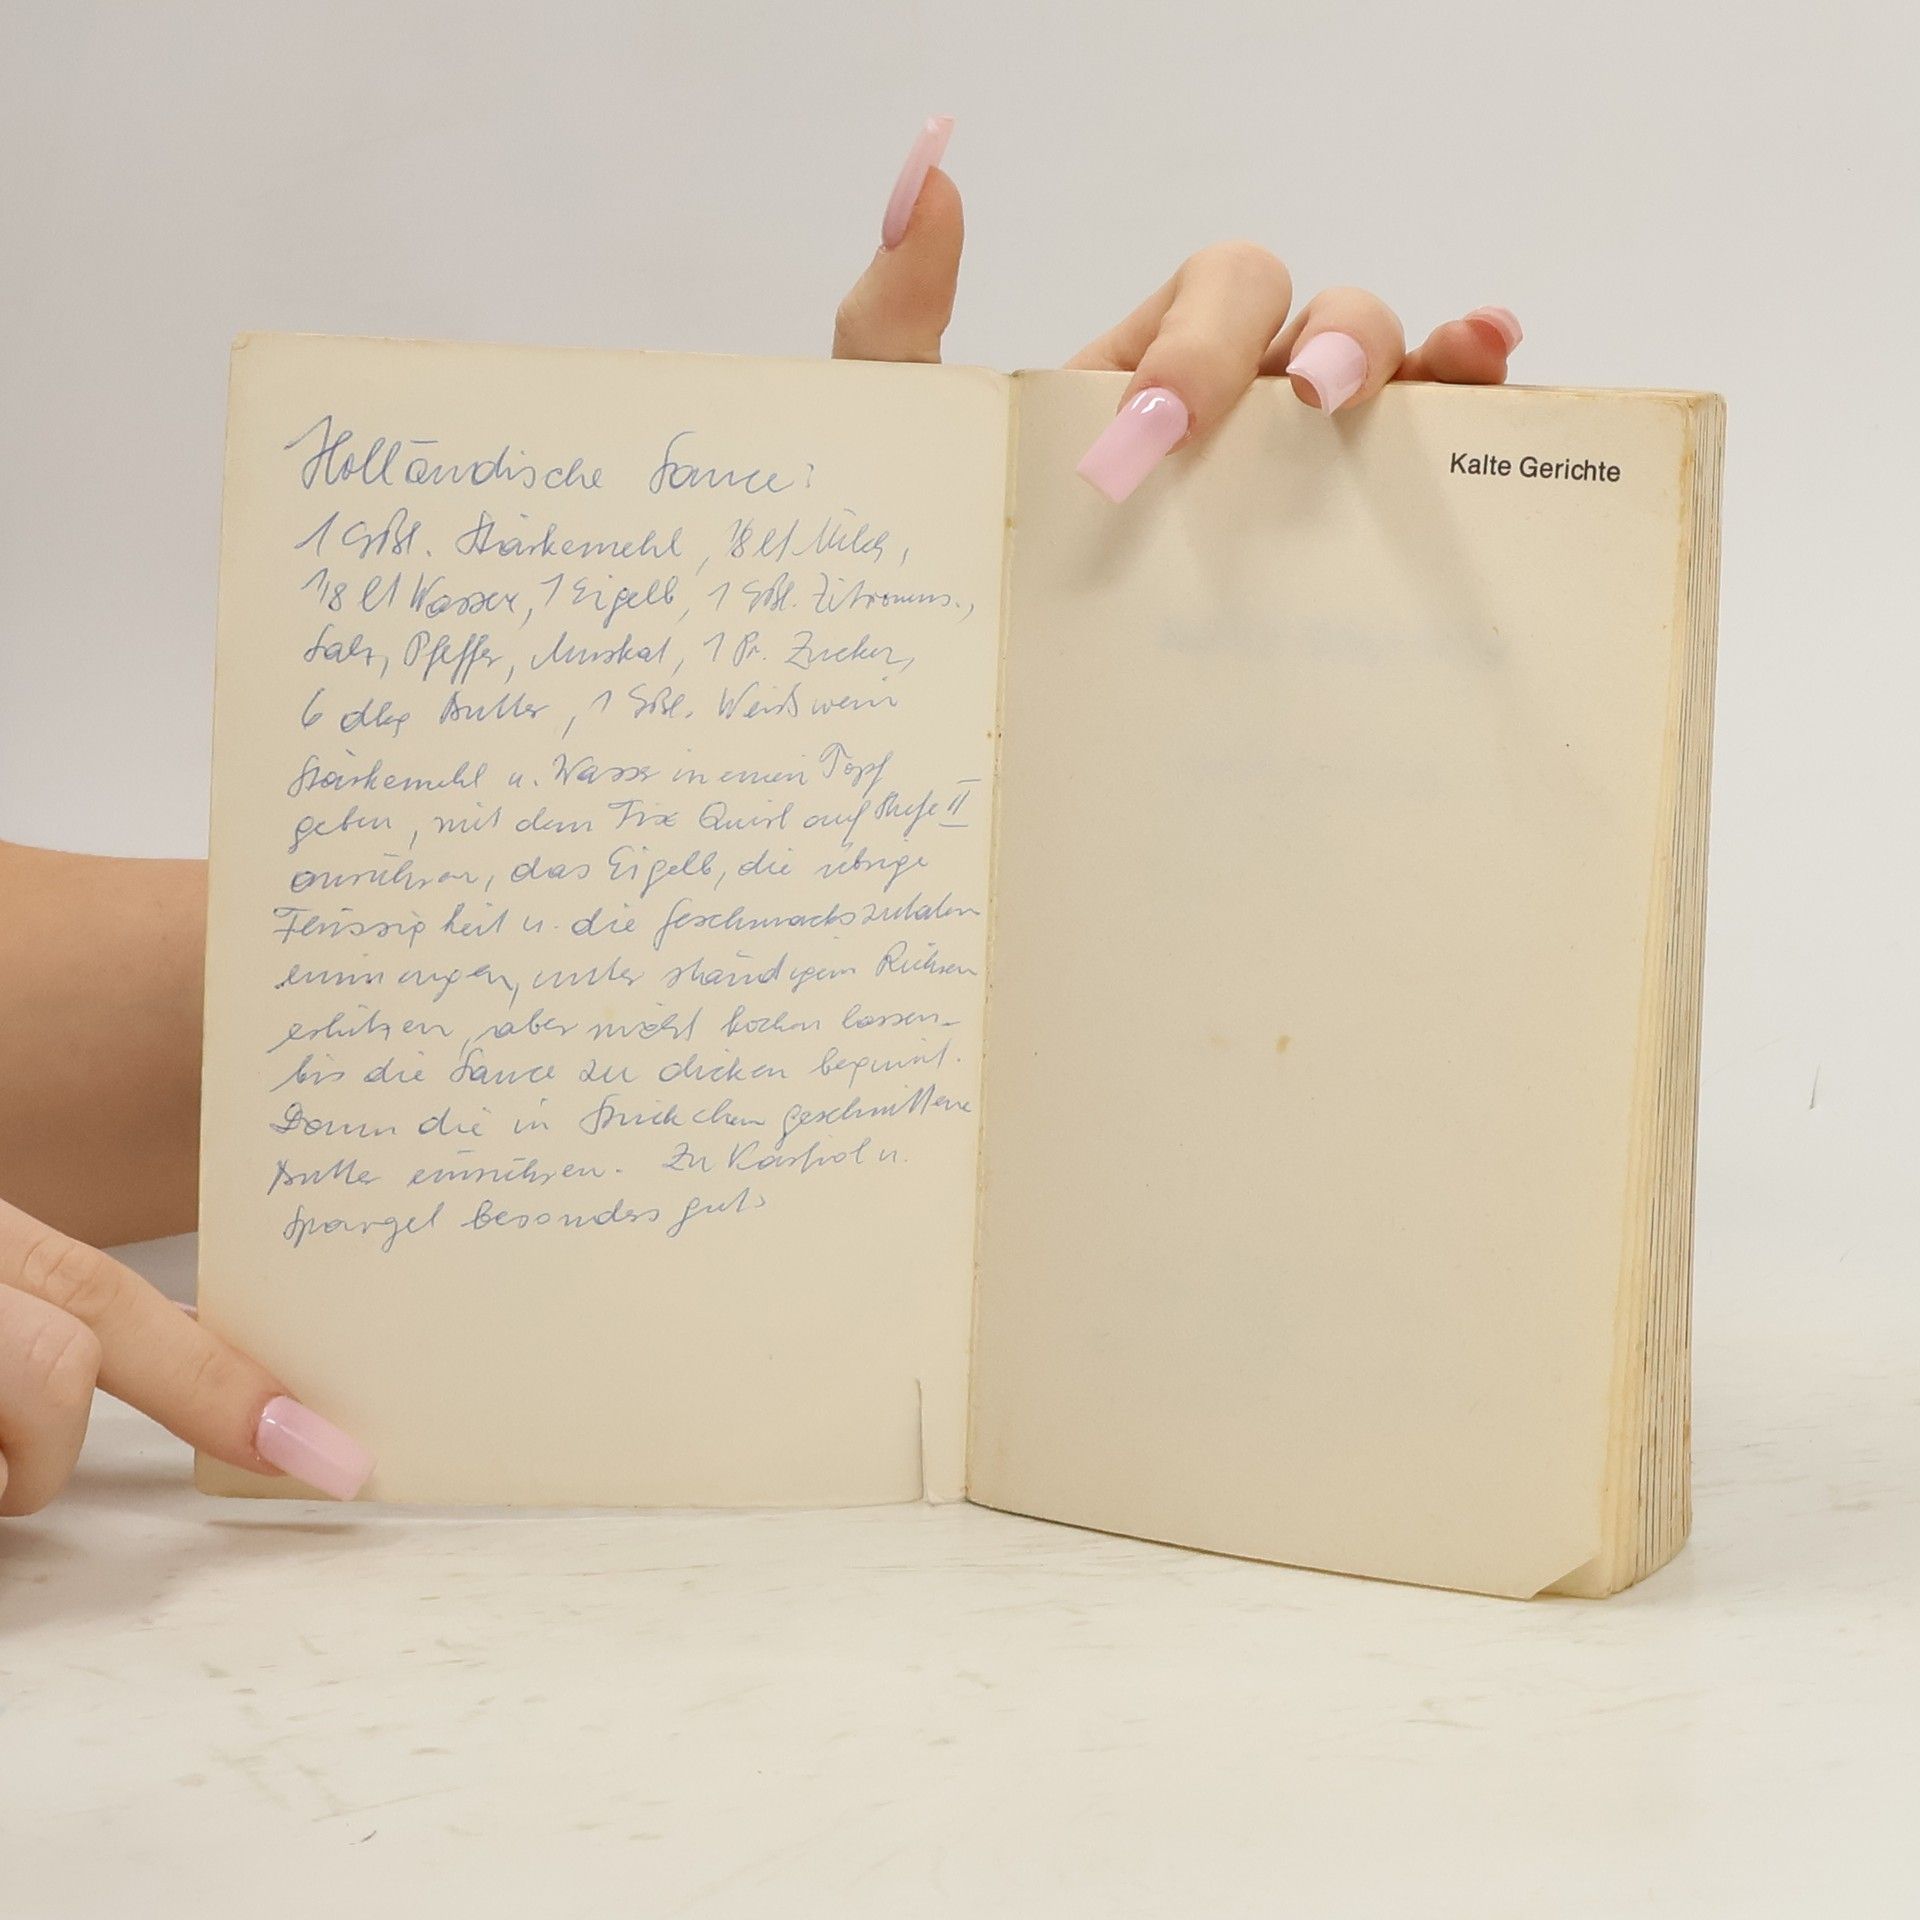 Holländische Sauce:
1 Eßl. Stärkemehl, 1/8 lt Milch,
1/8 lt Wasser, 1 Eigelb, 1 Eßl. Zitronens.,
Salz, Pfeffer, Muskat, 1 Pr. Zucker,
6 dkg Butter, 1 Eßl. Weißwein
Stärkemehl u. Wasser in einen Topf
geben, mit dem Fix Quirl auf Stufe II
anrühren, das Eigelb, die übrige
Flüssigkeit u. die Geschmackszutaten
unter ständigem Rühren
erhitzen, aber nicht kochen lassen
bis die Sauce zu dicken beginnt.
Dann die in Stückchen geschnittene
Butter einrühren. Zu Karfiol u.
Spargel besonders gut
Kalte Gerichte